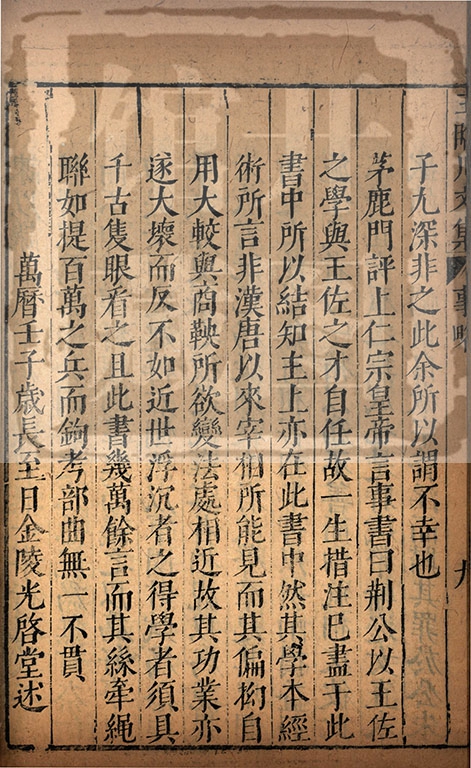 子尤深非之此余所以謂不幸也
茅鹿門評上仁宗皇帝言事書曰荆公以王佐
之學與王佐之才自任故一生措注已盡于此
書中所以結知主上亦在此書中然其學本經
術所言非漢唐以來宰相所能見而其偏拗自
用大較與商鞅所欲變法處相近故其功業亦
遂大壞而反不如近世浮沉者之得學者須具
千古隻眼看之且此書幾萬餘言而其絲牽繩
聯如提百萬之兵而鉤考部曲無一不貫
萬曆壬子歲長至日金陵光啓堂述